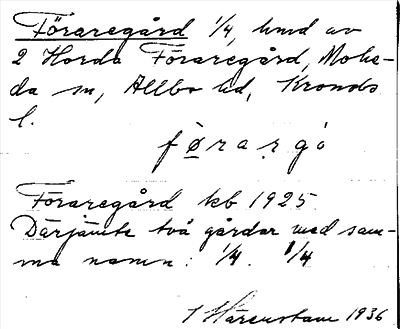 Föraregård 1/4, hmd av
2 Horda Föraregård, Mohe-
da sn, Allbo hd, Kronobs
l.
førargo
Föraregård kb 1925.
Därjämte två gårdar med sam-
ma namn: 1/4. 1/4
Härenstam 1936